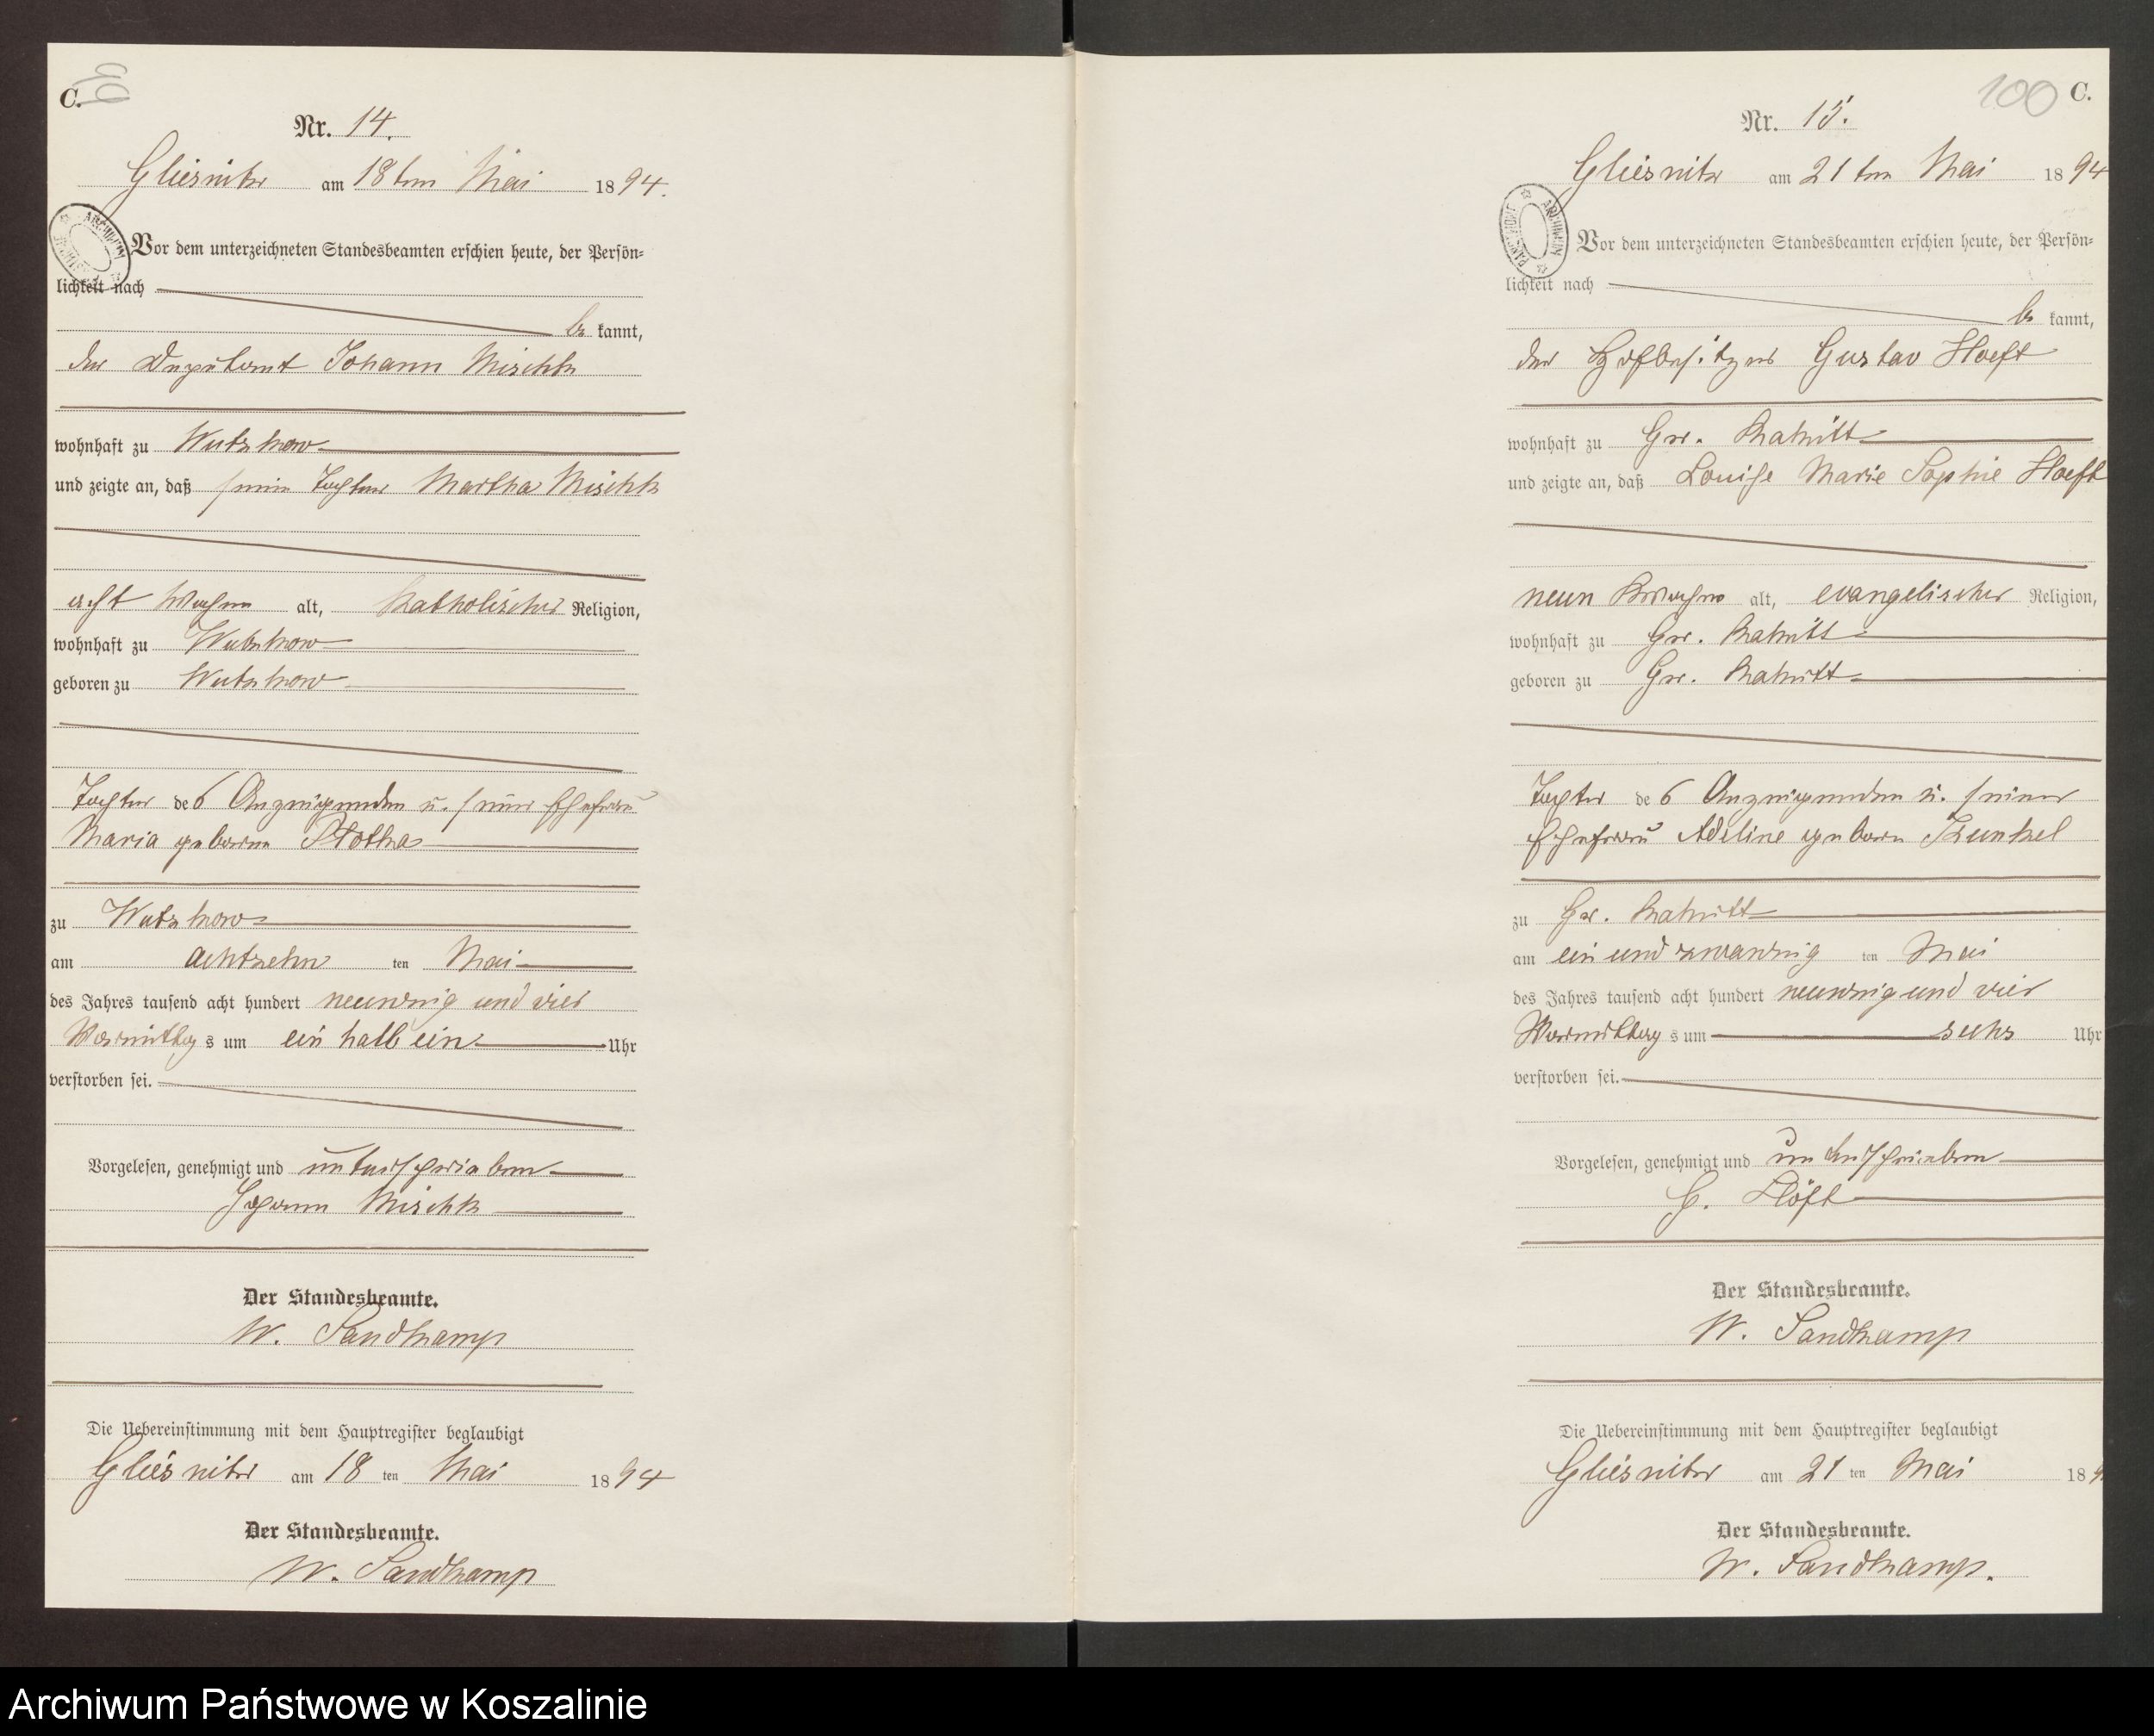 C.
Nr. 14.
Gliesnitz am 18ten Mai 1894.
Vor dem unterzeichneten Standesbeamten erschien heute, der Persön-
lichkeit nach
be kannt,
der Deputant Johann Mischke
wohnhaft zu Wutzkow
und zeigte an, daß seine Tochter Martha Mischke
acht Wochen alt, katholischer Religion,
wohnhaft zu Wutzkow
geboren zu Wutzkow
Tochter des Anzeigenden u. seiner Ehefrau
Maria geborene
zu Wutzkow
am achtzehn ten Mai
des Jahres tausend acht hundert neunzig und vier
Vormittags um ein halb ein Uhr
verstorben sei.
Vorgelesen, genehmigt und unterschrieben
Johann Mischke
Der Standesbeamte.
W. Sandkamp
Die Uebereinstimmung mit dem Hauptregister beglaubigt
Gliesnitz am 18 ten Mai 1894
Der Standesbeamte.
W. Sandkamp
100 C.
Nr. 15.
Gliesnitz am 21ten Mai 1894
Vor dem unterzeichneten Standesbeamten erschien heute, der Persön-
lichkeit nach
be kannt,
der Hofbesitzer Gustav Hoeft
wohnhaft zu Gr. Rakitt
und zeigte an, daß Louise Marie Sophie Hoeft
neun Wochen alt, evangelischer Religion,
wohnhaft zu Gr. Rakitt
geboren zu Gr. Rakitt
Tochter des Anzeigenden u. seiner
Ehefrau Adeline geboren Kunkel
zu Gr. Rakitt
am ein und zwanzig ten Mai
des Jahres tausend acht hundert neunzig und vier
Vormittags um sechs Uhr
verstorben sei.
Vorgelesen, genehmigt und unterschrieben
G. Höft
Der Standesbeamte.
W. Sandkamp
Die Uebereinstimmung mit dem Hauptregister beglaubigt
Gliesnitz am 21 ten Mai 189
Der Standesbeamte.
W. Sandkamp.
Archiwum Państwowe w Koszalinie